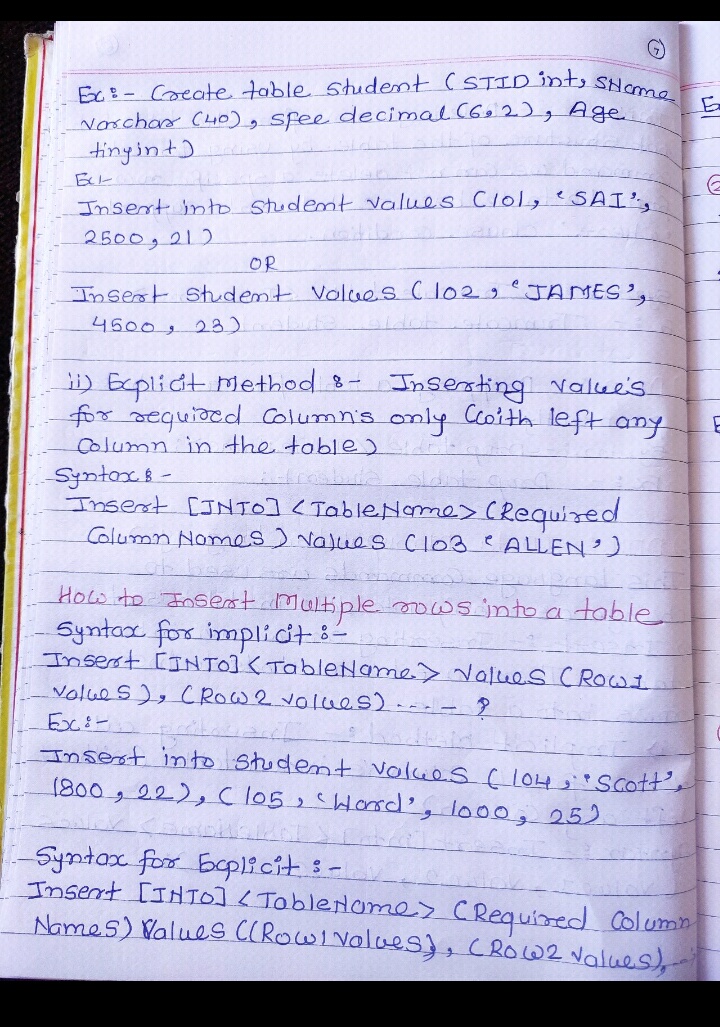 7
Ex:- Create table Student (STID int, SName
varchar (40), sfee decimal (6,2), Age
tinyint)
Ex:-
Insert into student values (101, 'SAI',
2500, 21)
OR
Insert Student Values (102, 'JAMES',
4500, 23)
ii) Explicit Method :- Inserting value's
for required Column's only (with left any
Column in the table)
Syntax :-
Insert [INTO] <TableName> (Required
Column Names) Values (103 'ALLEN')
How to Insert Multiple rows into a table
Syntax for implicit :-
Insert [INTO] <TableName> Values (Row1
values), (Row2 values) ... - ?
Ex:-
Insert into Student values (104, 'Scott',
1800, 22), (105, 'Ward', 1000, 25)
Syntax for Explicit :-
Insert [INTO] <TableName> (Required Column
Names) Values ((Row1 values), (Row2 values),...